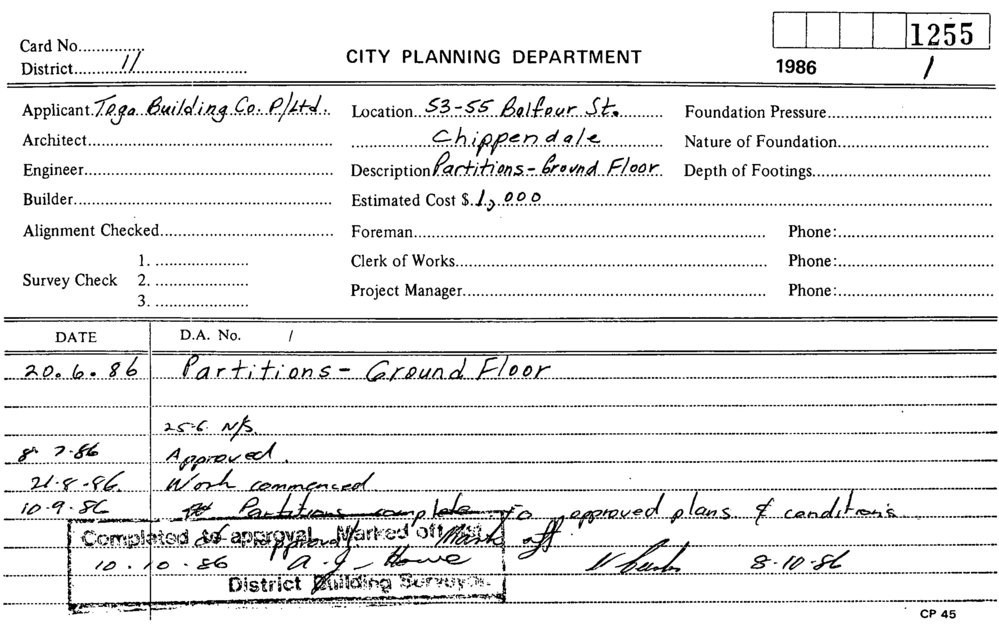 1255
Card No...............
CITY PLANNING DEPARTMENT
District.........11........................
1986 /
Applicant Toga Building Co. P/Ltd. Location 53-55 Balfour St. Foundation Pressure
Architect Chippendale Nature of Foundation
Engineer Description Partitions - Ground Floor Depth of Footings
Builder Estimated Cost $ 1,000
Alignment Checked Foreman Phone:
1. Clerk of Works Phone:
Survey Check 2.
3. Project Manager Phone:
DATE D.A. No. /
20.6.86 Partitions - Ground Floor
25-6 N/S.
8.7.86 Approved.
21.8.86. Work commenced
10.9.86 Partitions complete to approved plans & conditions
Completed to approval Marked off
approved Mark off
10.10.86 A.J. Howe 8.10.86
District Building Surveyor.
CP 45